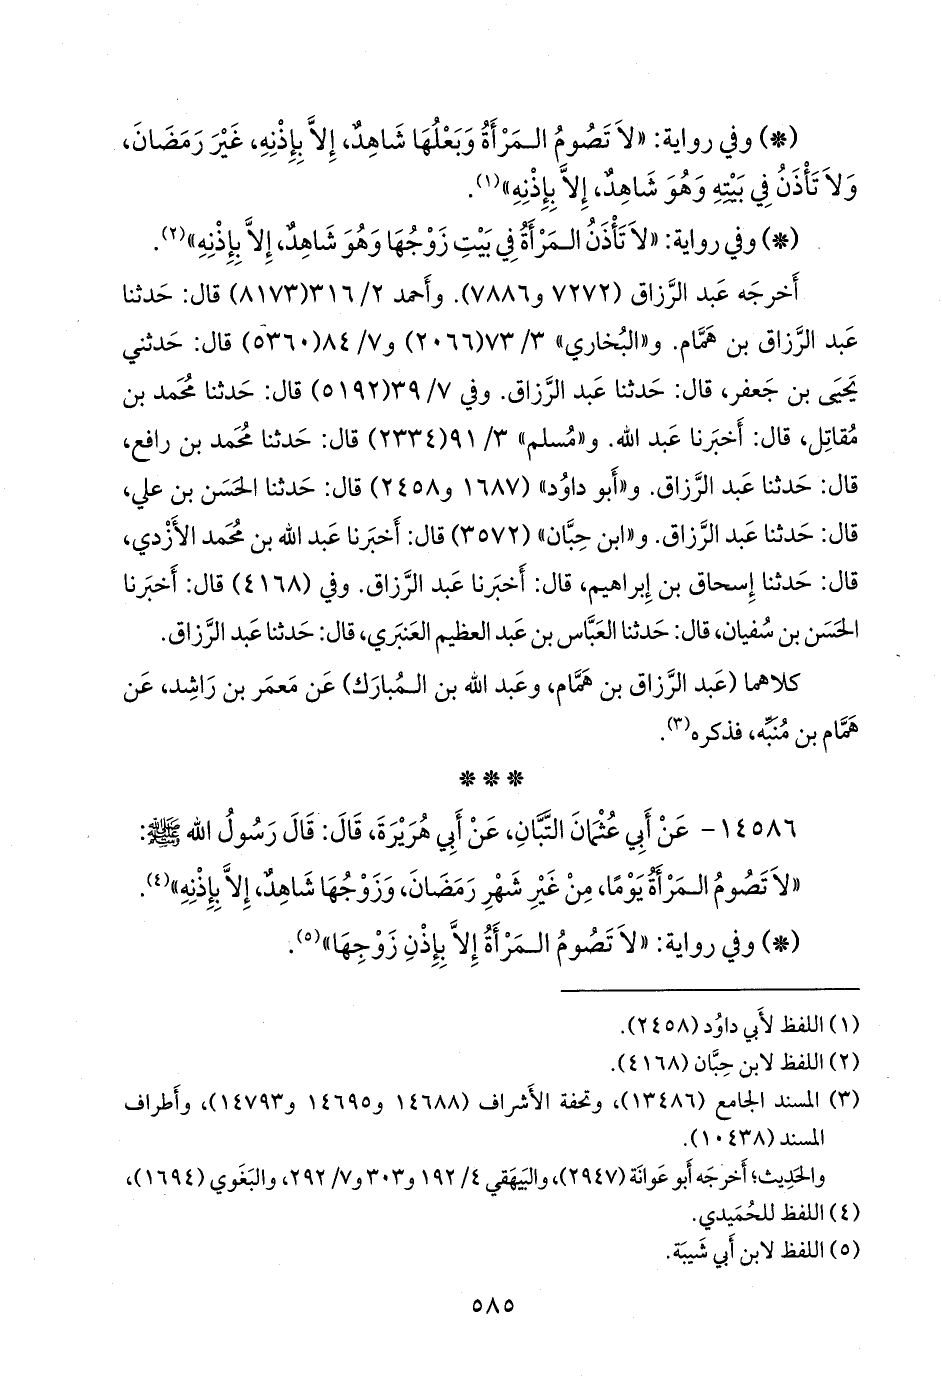 (*) وفي رواية: «لاَ تَصُومُ الـمَرْأَةُ وَبَعْلُهَا شَاهِدٌ، إِلاَّ بِإِذْنِهِ، غَيْرَ رَمَضَانَ،
وَلاَ تَأْذَنُ فِي بَيْتِهِ وَهُوَ شَاهِدٌ، إِلاَّ بِإِذْنِهِ»(١).
(*) وفي رواية: «لاَ تَأْذَنُ الـمَرْأَةُ فِي بَيْتِ زَوْجُهَا وَهُوَ شَاهِدٌ، إِلاَّ بِإِذْنِهِ»(٢).
أَخرجَه عَبد الرَّزاق (٧٢٧٢ و٧٨٨٦). وأَحمد ٢/ ٣١٦(٨١٧٣) قال: حَدثنا
عَبد الرَّزاق بن هَمَّام. و«البُخاري» ٣/ ٧٣(٢٠٦٦) و٧/ ٨٤(٥٣٦٠) قال: حَدثني
يَحيَى بن جَعفر، قال: حَدثنا عَبد الرَّزاق. وفي ٧/ ٣٩(٥١٩٢) قال: حَدثنا مُحمد بن
مُقاتِل، قال: أَخبَرنا عَبد الله. و«مُسلم» ٣/ ٩١(٢٣٣٤) قال: حَدثنا مُحمد بن رافع،
قال: حَدثنا عَبد الرَّزاق. و«أَبو داوُد» (١٦٨٧ و٢٤٥٨) قال: حَدثنا الحَسَن بن علي،
قال: حَدثنا عَبد الرَّزاق. و«ابن حِبَّان» (٣٥٧٢) قال: أَخبَرنا عَبد الله بن مُحمد الأَزْدي،
قال: حَدثنا إِسحاق بن إِبراهيم، قال: أَخبَرنا عَبد الرَّزاق. وفي (٤١٦٨) قال: أَخبَرنا
الحَسَن بن سُفيان، قال: حَدثنا العَبَّاس بن عَبد العظيم العَنبَري، قال: حَدثنا عَبد الرَّزاق.
كلاهما (عَبد الرَّزاق بن هَمَّام، وعَبد الله بن الـمُبارَك) عَن مَعمَر بن رَاشِد، عَن
هَمَّام بن مُنَبِّه، فذكره(٣).
* * *
١٤٥٨٦- عَنْ أَبِي عُثْمَانَ التَّبَّانِ، عَنْ أَبِي هُرَيْرَةَ، قَالَ: قَالَ رَسُولُ الله ﷺ:
«لاَ تَصُومُ الـمَرْأَةُ يَوْمًا، مِنْ غَيْرِ شَهْرِ رَمَضَانَ، وَزَوْجُهَا شَاهِدٌ، إِلاَّ بِإِذْنِهِ»(٤).
(*) وفي رواية: «لاَ تَصُومُ الـمَرْأَةُ إِلاَّ بِإِذْنِ زَوْجِهَا»(٥).
(١) اللفظ لأَبي داوُد (٢٤٥٨).
(٢) اللفظ لابن حِبَّان (٤١٦٨).
(٣) المسند الجامع (١٣٤٨٦)، وتحفة الأشراف (١٤٦٨٨ و١٤٦٩٥ و١٤٧٩٣)، وأَطراف
المسند (١٠٤٣٨).
والحَدِيث؛ أَخرجَه أَبو عَوانَة (٢٩٤٧)، والبَيهَقي ٤/ ١٩٢ و٣٠٣ و٧/ ٢٩٢، والبَغَوي (١٦٩٤)،
(٤) اللفظ للحُمَيدي.
(٥) اللفظ لابن أَبي شَيبَة.
٥٨٥